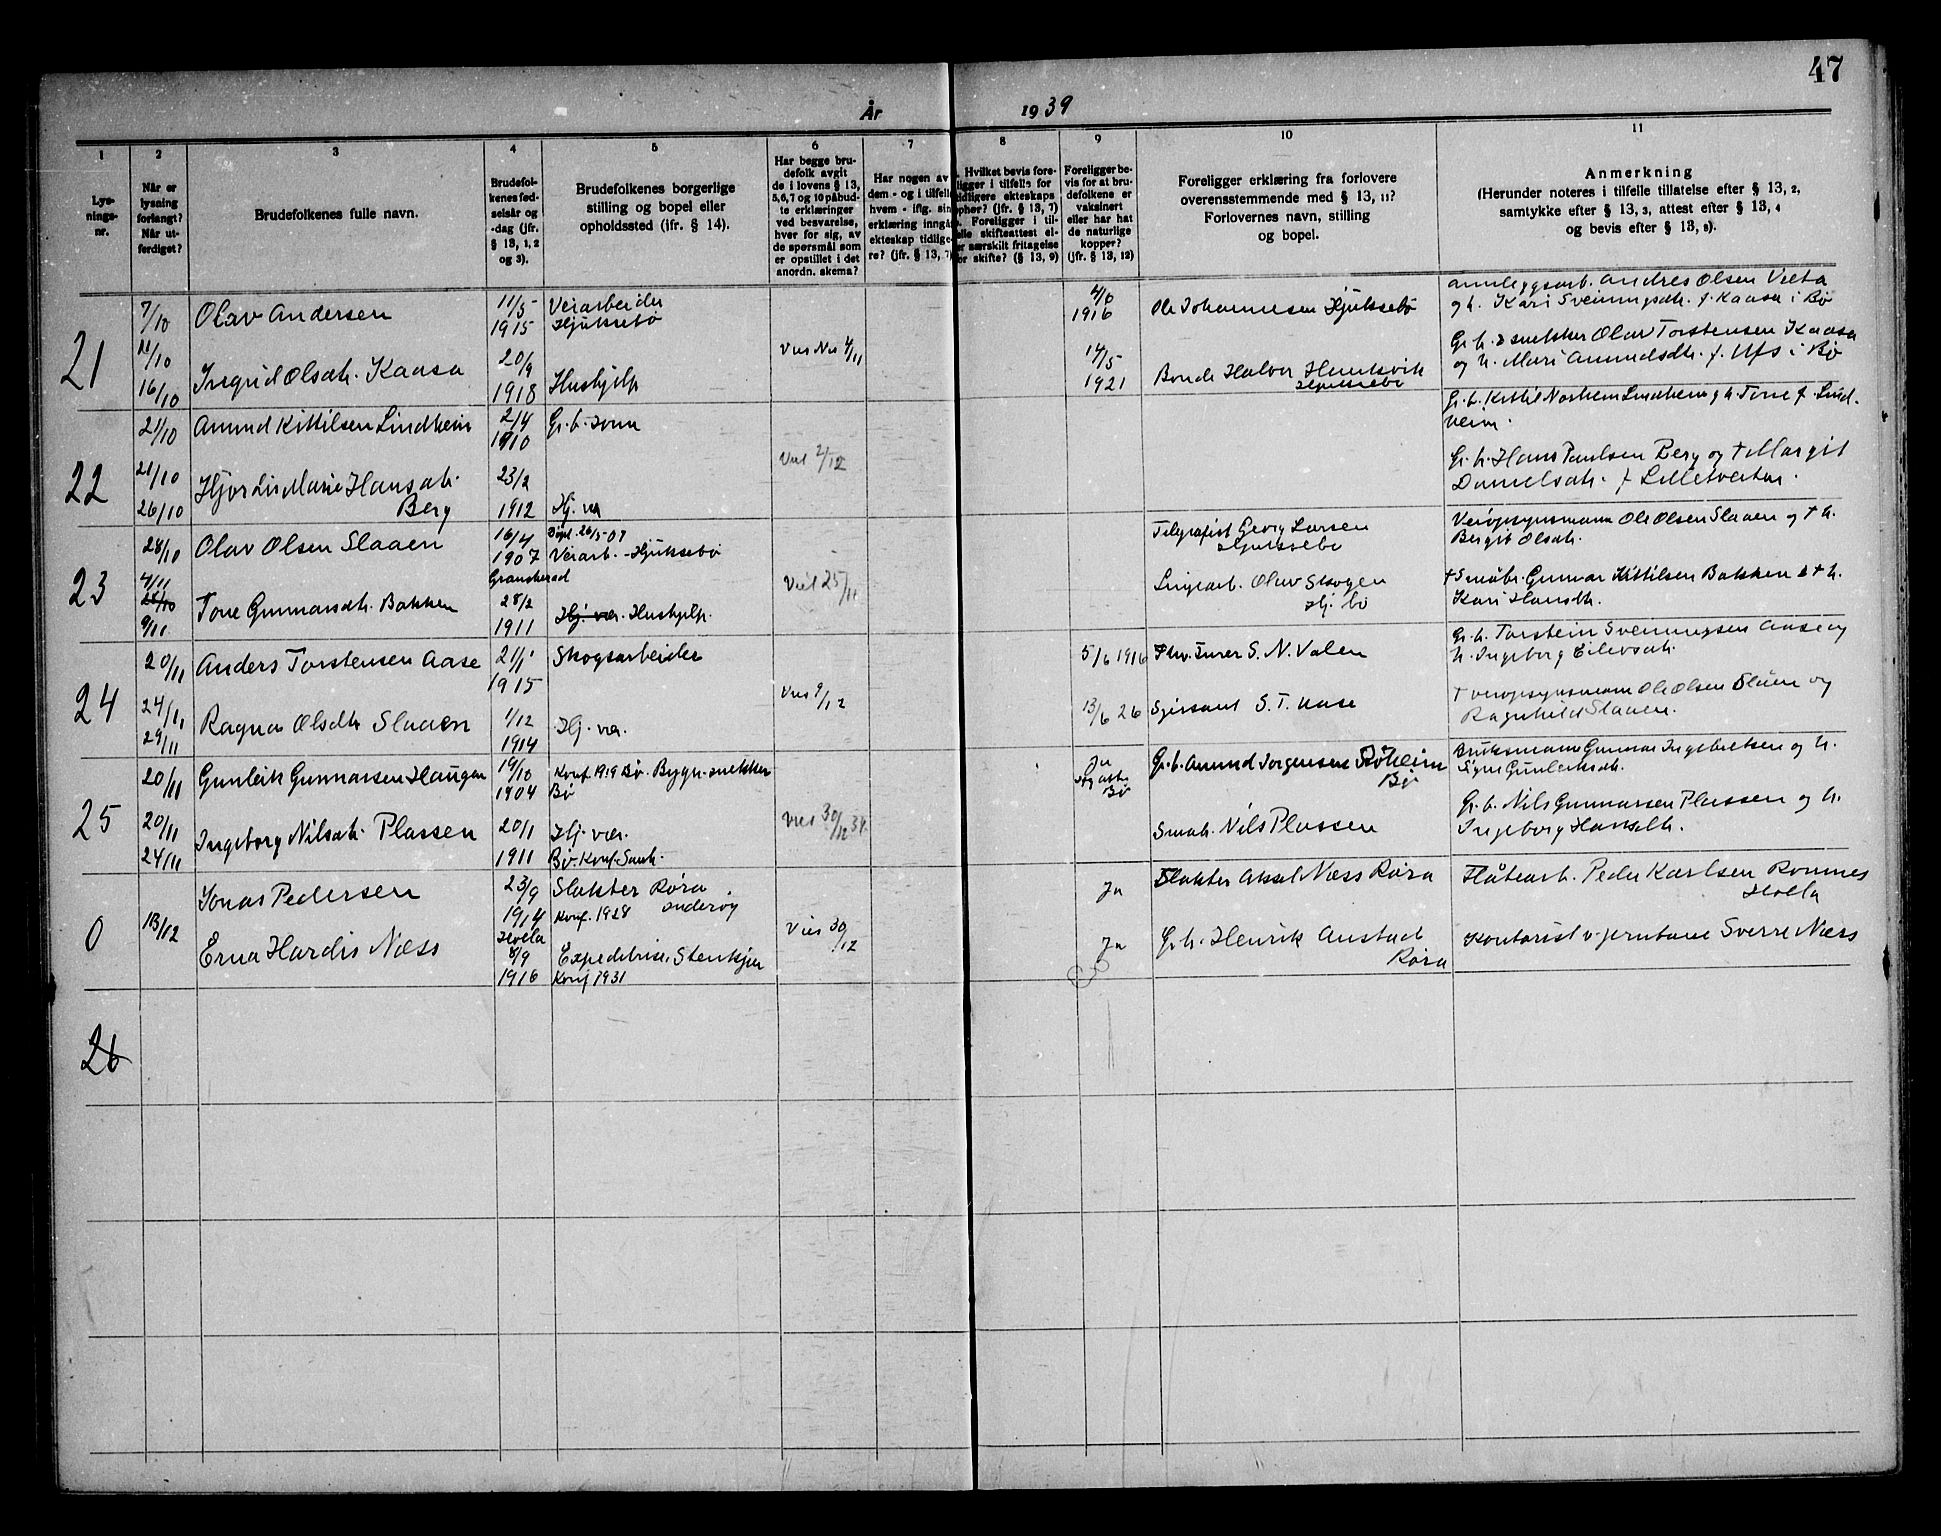 47
År 1939
1
2
3
4
5
6
7
8
9
10
11
Lys-
nings-
nr.
Når er
lysning
forlangt?
Når ut-
ferdiget?
Brudefolkenes fulle navn.
Brudefol-
kenes fød-
selsår og
-dag (jfr.
§ 13, 1, 2
og 3).
Brudefolkenes borgerlige
stilling og bopel eller
opholdssted (jfr. § 14).
Har begge bru-
defolk avgit
de i lovens § 13,
5,6,7 og 10 påbud-
te erklæringer
ved besvarelse,
hver for sig, av
de spørsmål som
er opstillet i det
anordn. skema?
Har nogen av
dem - og i tilfelle
hvem - iflg. sin
erklæring inngå
ekteskap tidlige-
re? (jfr. § 13, 7)
Hvilket bevis fore-
ligger i tilfelle for
tidligere ekteskaps
ophør? (jfr. § 13, 7)
Foreligger i til-
elle skifteattest el-
er særskilt fritagelse
for skifte? (§ 13, 9)
Foreligger be-
vis for at bru-
defolkene er
vaksinert
eller har hat
de naturlige
kopper?
(jfr. § 13, 12)
Foreligger erklæring fra forlovere
overensstemmende med § 13, 11?
Forlovernes navn, stilling
og bopel.
Anmerkning
(Herunder noteres i tilfelle tillatelse efter § 13, 2,
samtykke efter § 13, 3, attest efter § 13, 4
og bevis efter § 13, 8).
21
7/10
Olav Andersen
11/5
1915
Veiarbeider
Hjuksebø
4/6
1916
Ole Johannesen Hjuksebø
anleggsarb. Andres Olsen
og h. Kari Sveinungsdtr. f. Kaasa i Bø
11/10
16/10
Ingrid Olsdtr. Kaasa
20/9
1918
Hushjelp
Vies 4/11
14/5
1921
Bonde Halvor
Hjuksebø
Gr.b. & snekker Olav Torstensen Kaasa
og h. Mari Amundsdtr. f. Ufs i Bø
22
21/10
Amund Kittilsen Lindheim
2/4
1910
Gr.b. sønn
Gr.b. Kittil Lindheim g h. Tone f. Lind-
heim.
21/10
26/10
Hjørdis Marie Hansdtr.
Berg
23/2
1912
Hj. vær
Viet 2/12
Gr.b. Hans Paulsen Berg og † Margit
Danielsdtr. f. Lilletveiten.
23
28/10
Olav Olsen Slaaen
16/4
1907
Gransherad
Døpt 26/5-07
Veiarb. - Hjuksebø
Telegrafist Georg Larsen
Hjuksebø
Veiopsynsmann Ole Olsen Slaaen og † h.
Bergit Olsdtr.
4/11
28/10
9/11
Tone Gunnarsdtr. Bakken
28/2
1911
Hj. vær. Hushjelp.
Viet 25/11
Linjearb. Olav Skogen
Hj. bø
† Småbr. Gunnar Kittilsen Bakken & † h.
Kari Hansdtr.
24
20/11
Anders Torstensen Aase
21/1
1915
Skogsarbeider
5/6 1916
S. N. Valen
Gr.b. Torstein Sveinungsen Aase og
h. Ingeborg Eilevsdtr.
24/11
29/11
Ragna Olsdtr. Slaaen
1/12
1914
Hj. vær.
Vies 9/12
13/6 26
Sersjant S. T. Aase
† veiopsynsmann Ole Olsen Slaaen og
Ragnhild Slaaen.
25
20/11
Gunleik Gunnarsen Haugen
19/10
1904
Konf. 1919 Bø. Bygn. snekker
Bø
Ja
Bø
Gr.b. Amund Jørgensen Røheim
Bø
Bruksmann Gunnar Ingebretsen og h.
Signe Gunleiksdtr.
20/11
24/11
Ingeborg Nilsdtr. Plassen
20/1
1911
Hj. vær.
Bø. Konf. Sauh.
Vies 30/12 39.
Småb. Nils Plassen
Gr.b. Nils Gunnarsen Plassen og h.
Ingeborg Hansdtr.
0
13/12
Jonas Pedersen
23/9
1914
Holla
Slakter Røra
Konf. 1928 Inderøy
Ja
Slakter Aksel Næss Røra
Flåtearb. Peder Karlsen Romnes
Holla
Erna Hardis Næss
8/9
1916
Expeditrise, Stenkjer
Konf 1931
Vies 30/12
Ja
Gr.b. Henrik Anstad
Røra
Kontorist v. jernbane Sverre Næss
26